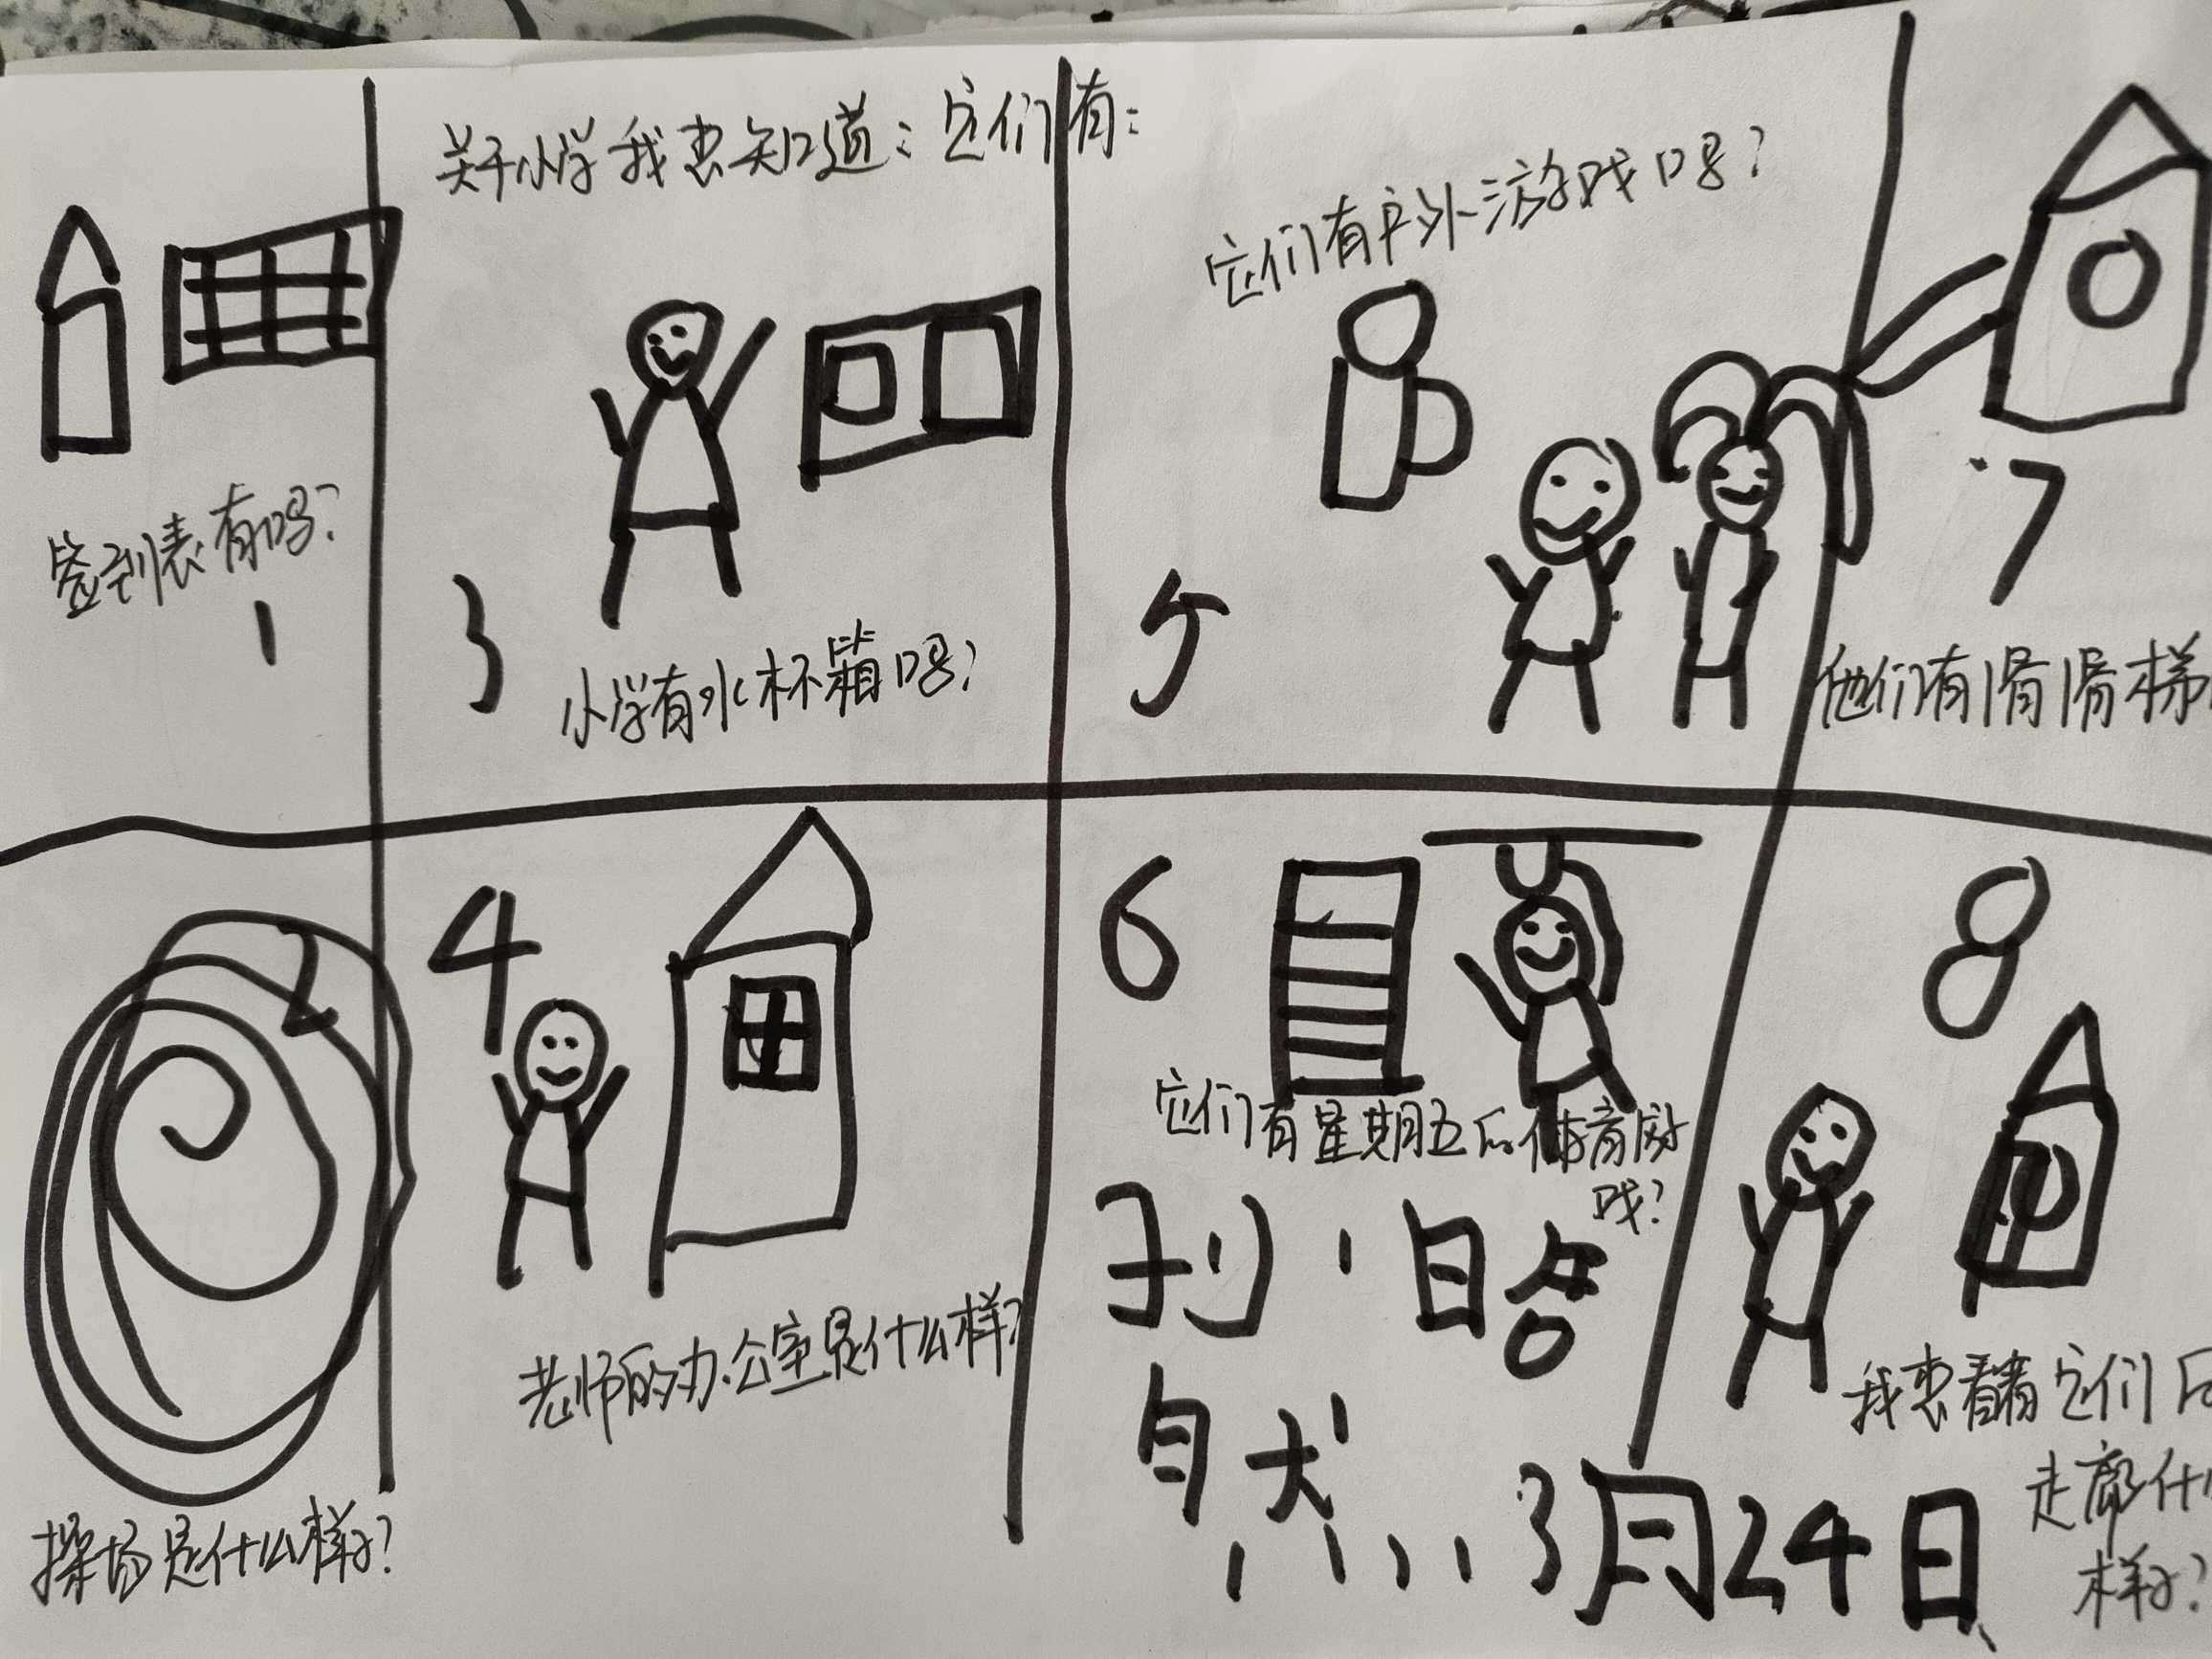 关于小学我想知道：它们有：
签到表有吗？
1
3
小学有水杯箱吗？
它们有户外游戏吗？
5
7
他们有滑滑梯
2
操场是什么样？
4
老师的办公室是什么样？
6
它们有星期五的体育游
戏？
8
我想看看它们的
走廊什么
样？
3月24日